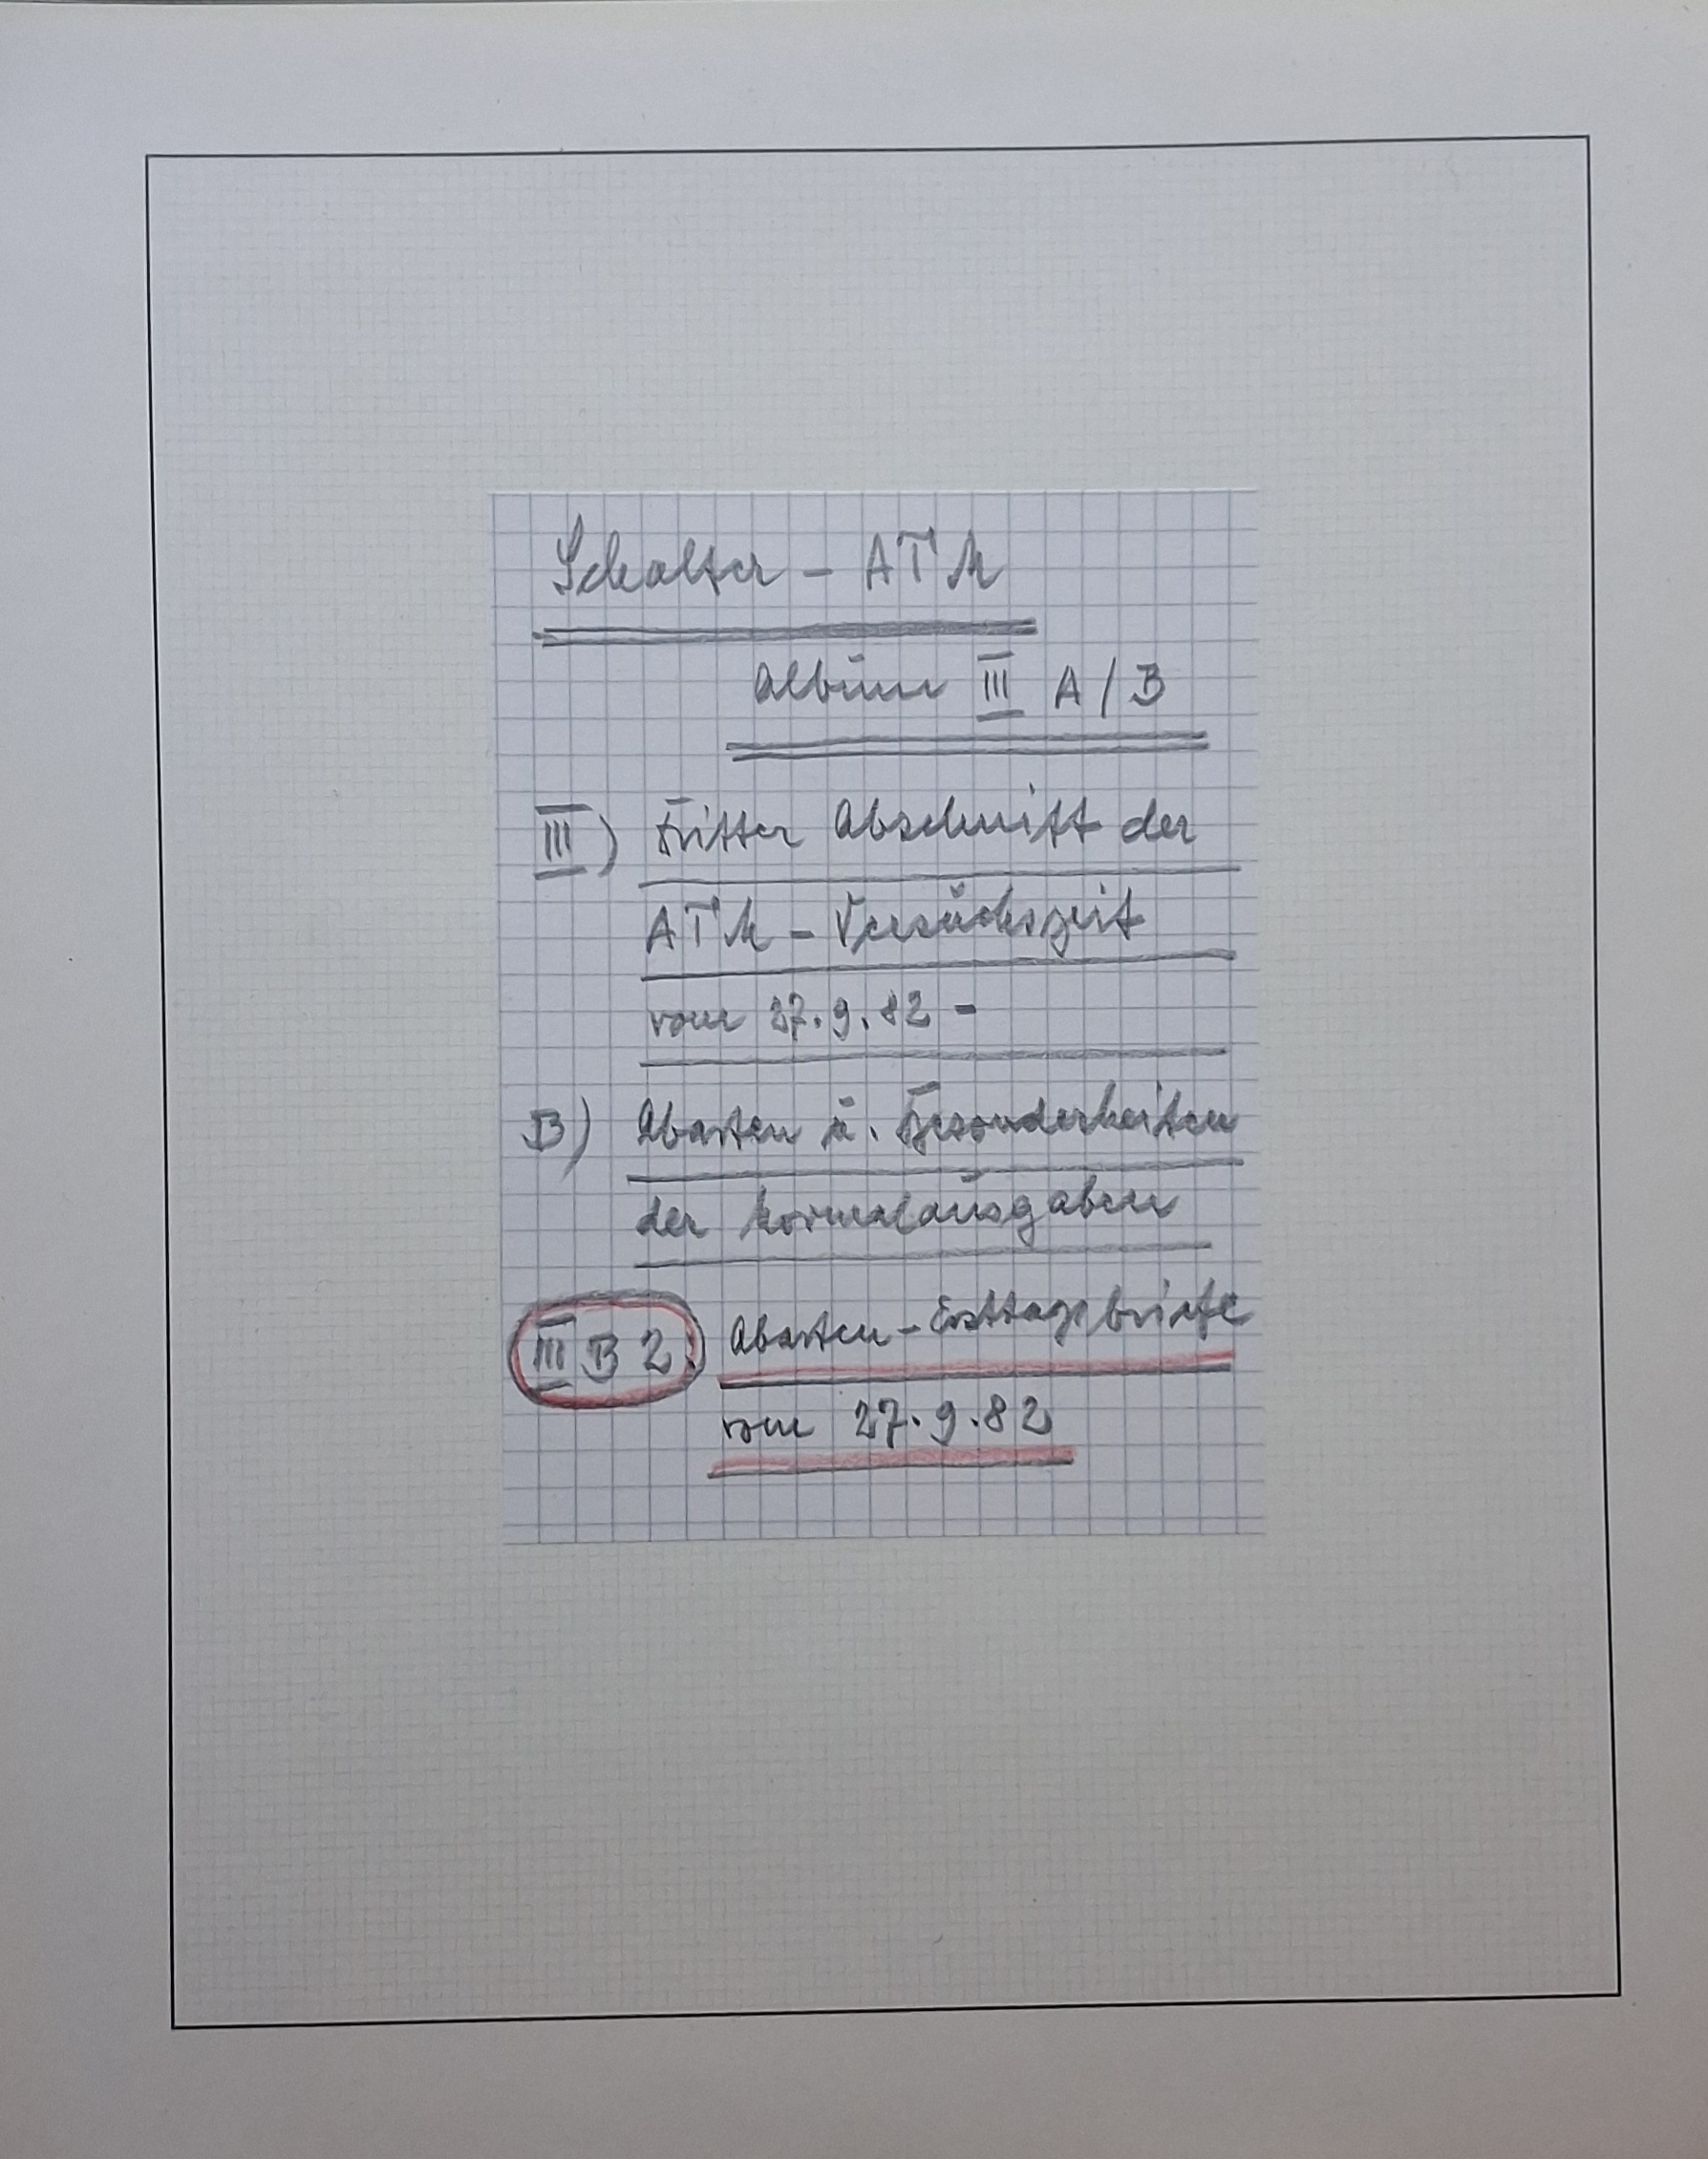 Schalter - ATM
Album III A/B
III) Dritter Abschnitt der
ATM - Versuchszeit
vom 27.9.82 -
B) Abarten u. Besonderheiten
der Normalausgaben
III B 2) Abarten - Ersttagsbriefe
vom 27.9.82